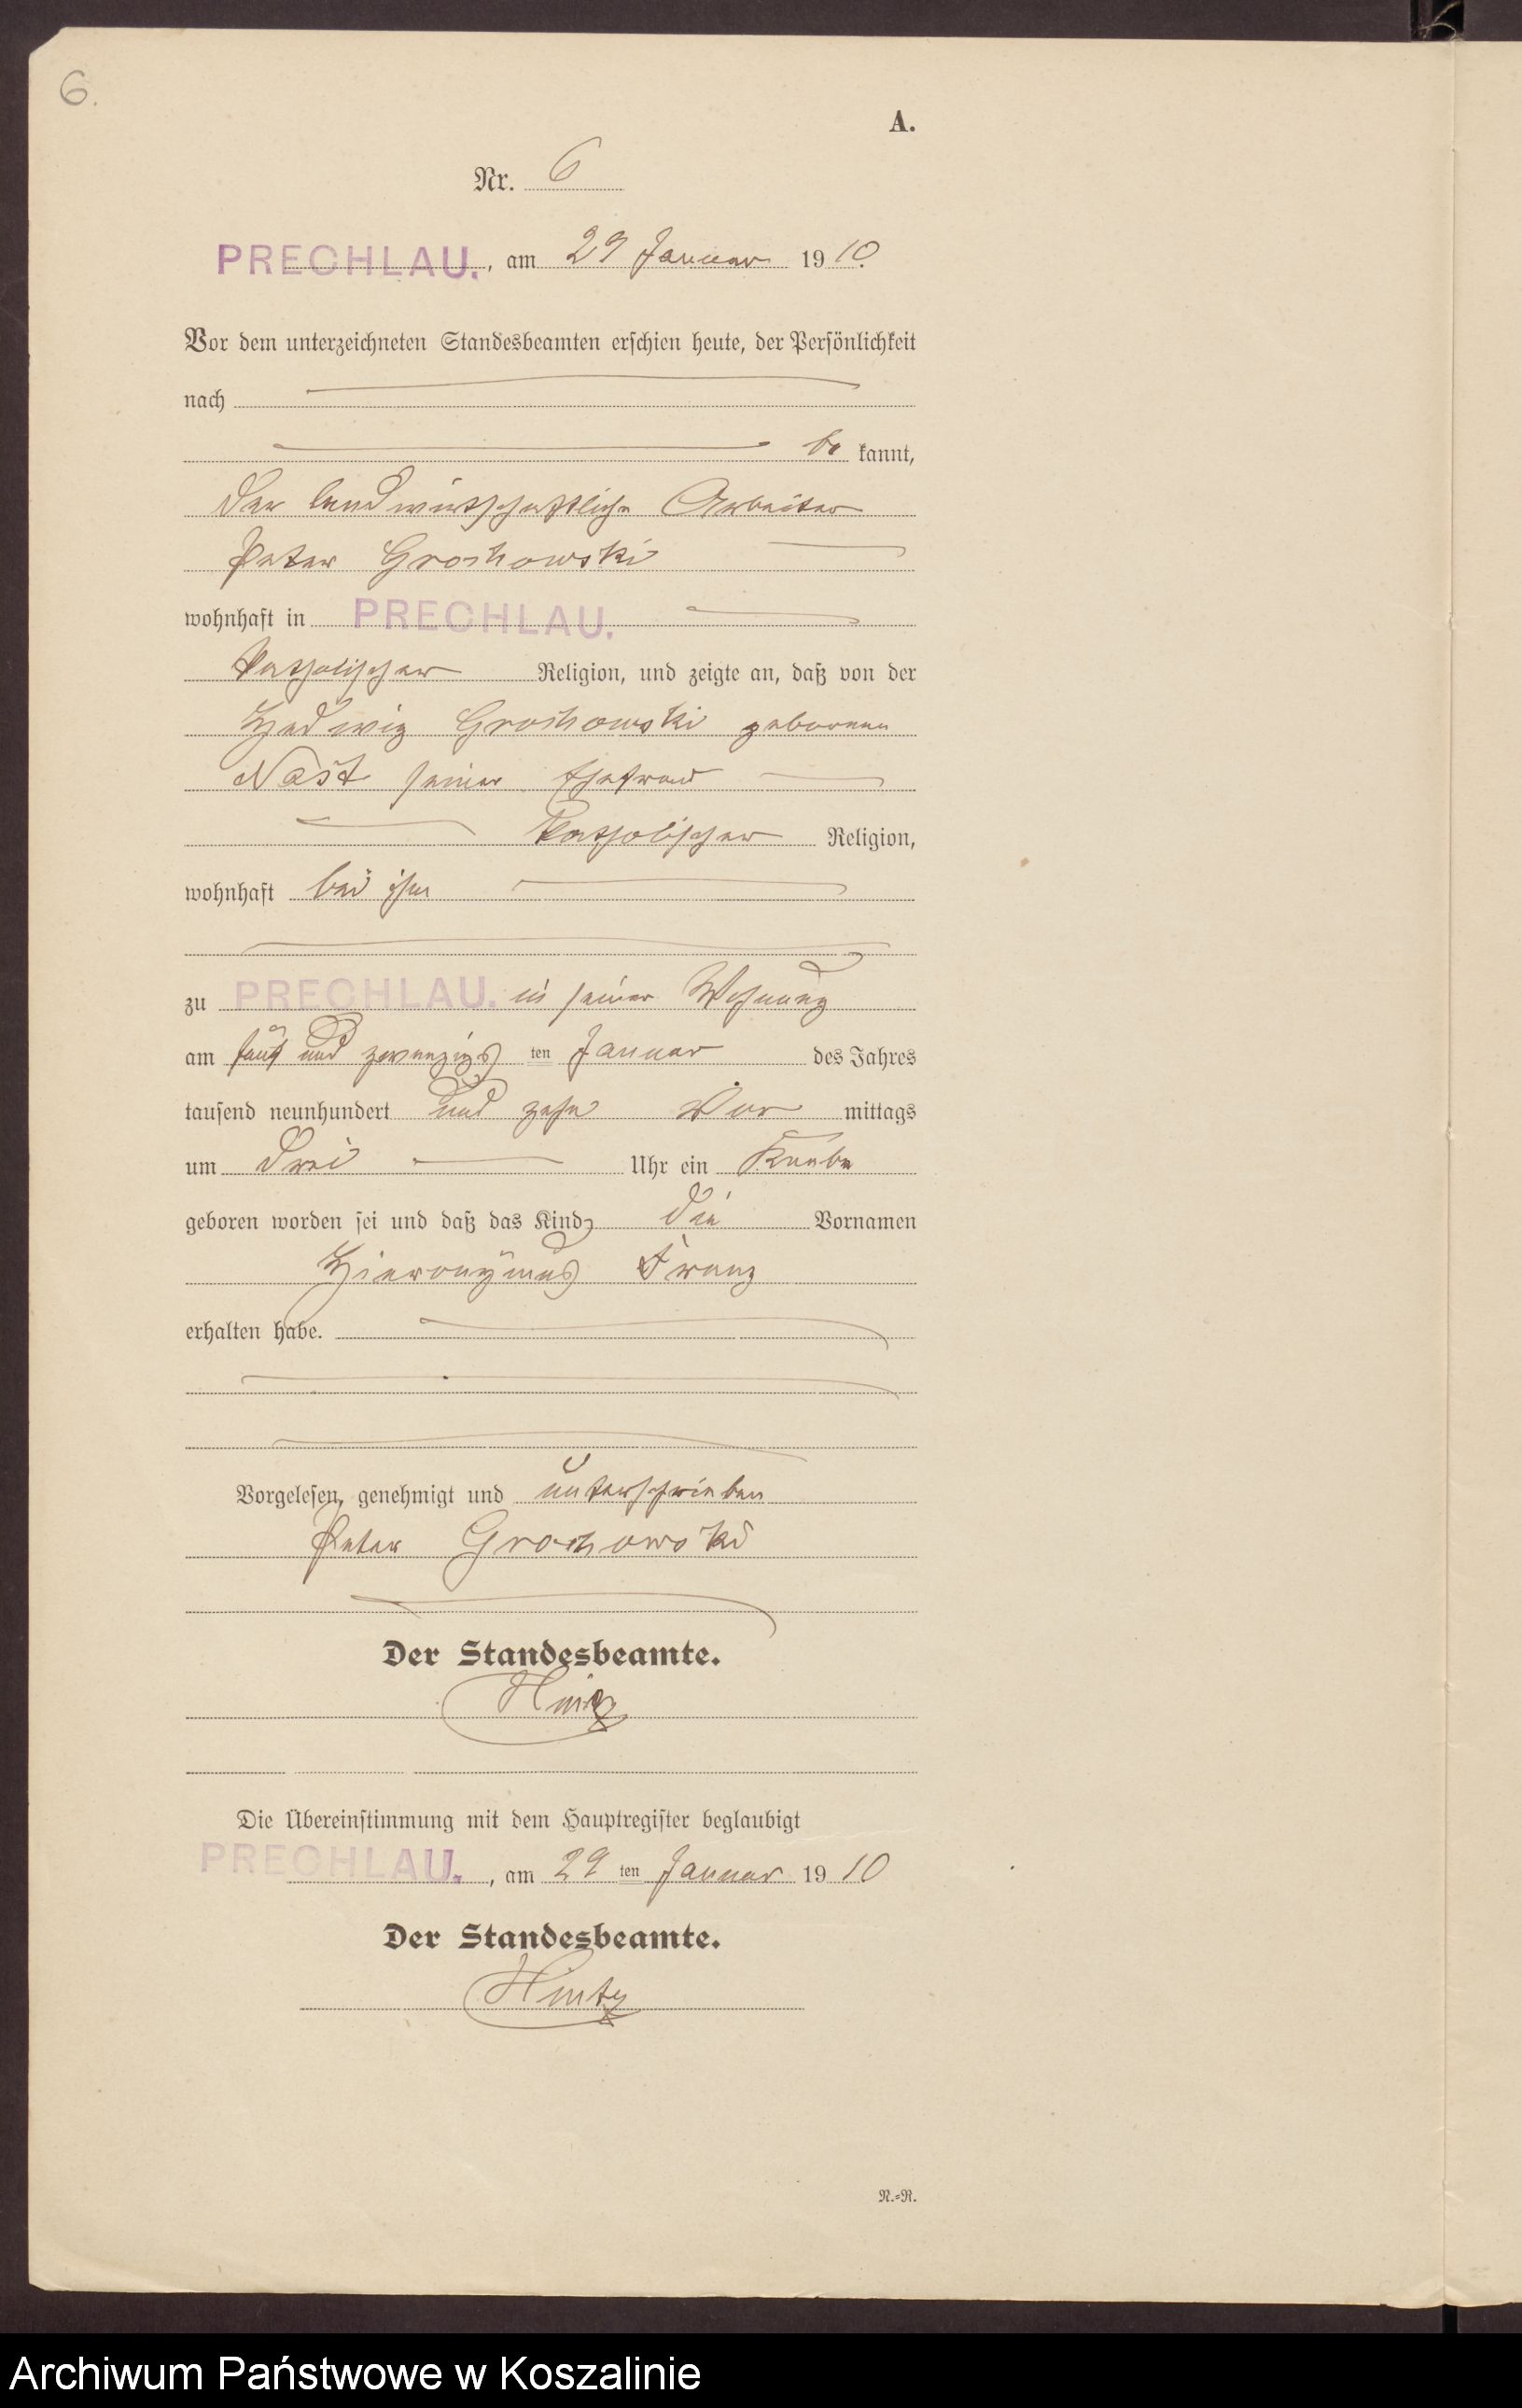 6.
A.
Nr. 6
PRECHLAU., am 29 Januar 1910.
Vor dem unterzeichneten Standesbeamten erschien heute, der Persönlichkeit
nach
be kannt,
der landwirtschaftliche Arbeiter
Peter Grochowski
wohnhaft in PRECHLAU.
katholischer Religion, und zeigte an, daß von der
Hedwig Grochowski geborenen
seiner Ehefrau
katholischer Religion,
wohnhaft bei ihm
zu PRECHLAU. in seiner Wohnung
am fünf und zwanzigs ten Januar des Jahres
tausend neunhundert und zehn Vor mittags
um drei Uhr ein Knabe
geboren worden sei und daß das Kind die Vornamen
Hieronymus Franz
erhalten habe.
Vorgelesen, genehmigt und unterschrieben
Peter Grochowski
Der Standesbeamte.
Hintz
Die Übereinstimmung mit dem Hauptregister beglaubigt
PRECHLAU., am 29 ten Januar 1910
Der Standesbeamte.
Hintz
N.=R.
Archiwum Państwowe w Koszalinie